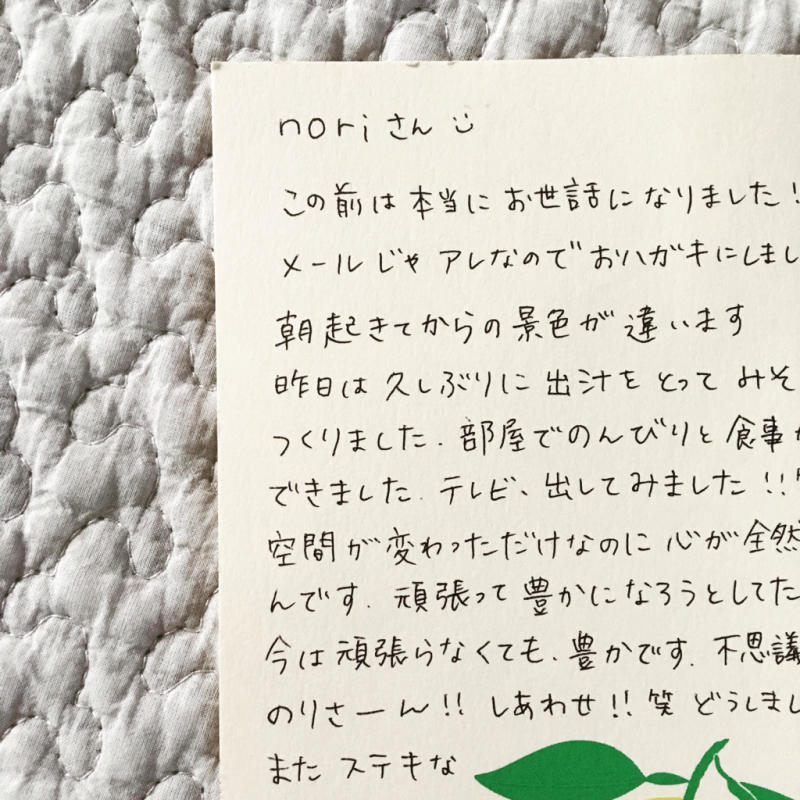 noriさん
この前は本当にお世話になりました!
メールじゃアレなのでおハガキにしまし
朝起きてからの景色が違います
昨日は久しぶりに出汁をとってみそ
つくりました.部屋でのんびりと食事
できました.テレビ、出してみました!!
空間が変わっただけなのに心が全然
んです.頑張って豊かになろうとしてた
今は頑張らなくても、豊かです.不思議
のりさーん!!しあわせ!!笑 どうしまし
またステキな